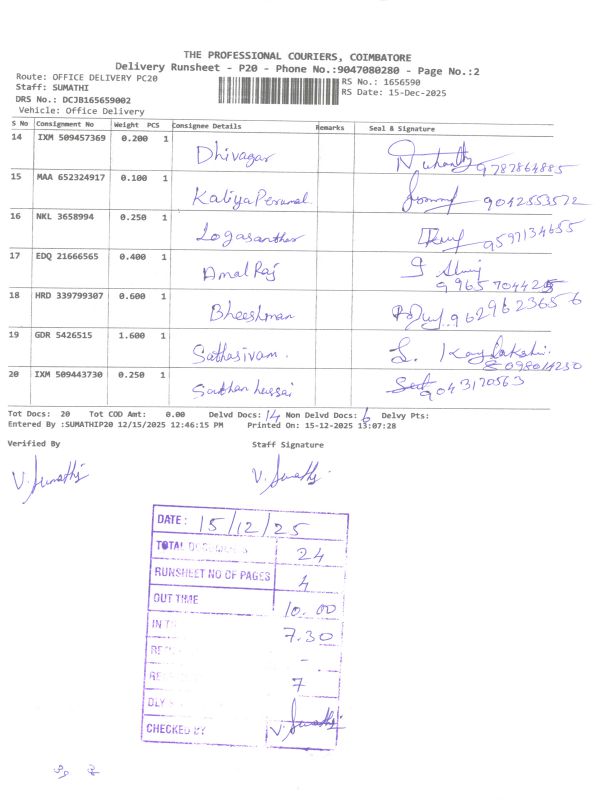 THE PROFESSIONAL COURIERS, COIMBATORE
Delivery Runsheet - P20 - Phone No.:9047080280 - Page No.:2
Route: OFFICE DELIVERY PC20
RS No.: 1656590
Staff: SUMATHI
RS Date: 15-Dec-2025
DRS No.: DCJB165659002
Vehicle: Office Delivery
S No Consignment No Weight PCS Consignee Details Remarks Seal & Signature
14 IXM 509457369 0.200 1 Dhivagar 9787864885
15 MAA 652324917 0.100 1 Kaliya Perumal 9042553572
16 NKL 3658994 0.250 1 Logasanthar 9597134655
17 EDQ 21666565 0.400 1 Amal Raj 9965704425
18 HRD 339799307 0.600 1 Bheeshman 9629623656
19 GDR 5426515 1.600 1 Sathasivam.
20 IXM 509443730 0.250 1 9043170563
Tot Docs: 20 Tot COD Amt: 0.00 Delvd Docs: 14 Non Delvd Docs: 6 Delvy Pts:
Entered By :SUMATHIP20 12/15/2025 12:46:15 PM Printed On: 15-12-2025 13:07:28
Verified By Staff Signature
V. Sumathi V. Sumathi
DATE: 15/12/25
TOTAL DOCUMENTS 24
RUNSHEET NO OF PAGES 4
OUT TIME 10.00
IN 7.30
-
7
DLY
CHECKED BY V. Sumathi